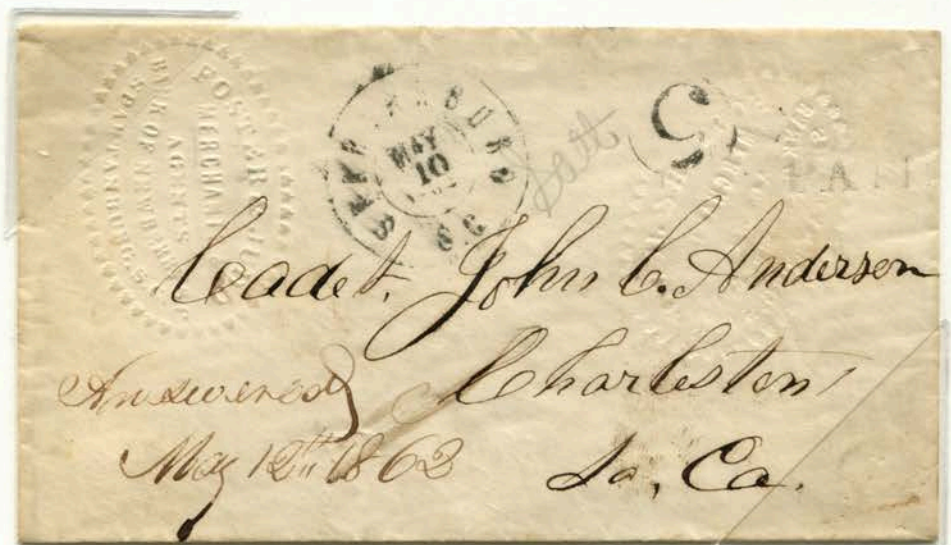 FOSTER & JUDD
MERCHANTS
AGENTS
BANK OF NEWBERRY
SPARTANBURG, S.C.
SPARTANBURG
MAY
10
S.C
5
PAID
Cadet. John C. Anderson
Charleston
So, Ca.
Answered
May 12th 1862